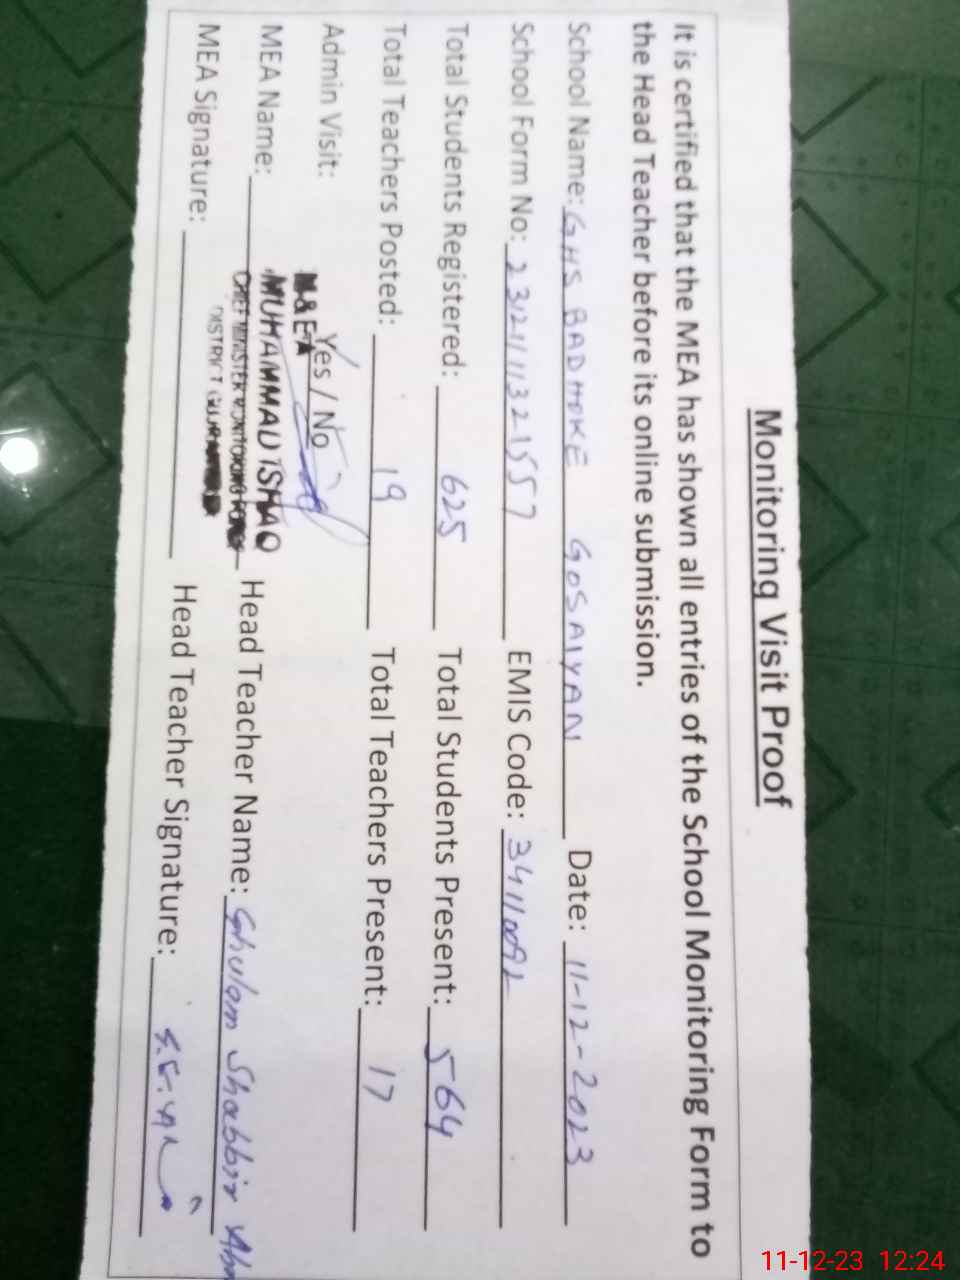 Monitoring Visit Proof
It is certified that the MEA has shown all entries of the School Monitoring Form to
the Head Teacher before its online submission.
School Name: GHS BADHOKE GOSAIYAN Date: 11-12-2023
School Form No: 2312111321557 EMIS Code: 34110092
Total Students Registered: 625 Total Students Present: 564
Total Teachers Posted: 19 Total Teachers Present: 17
Admin Visit: Yes / No
M&EA
MEA Name: MUHAMMAD ISHAQ Head Teacher Name: Ghulam Shabbir
CHIEF MINISTER MONITORING FORCE
MEA Signature: Head Teacher Signature:
DISTRICT
11-12-23 12:24